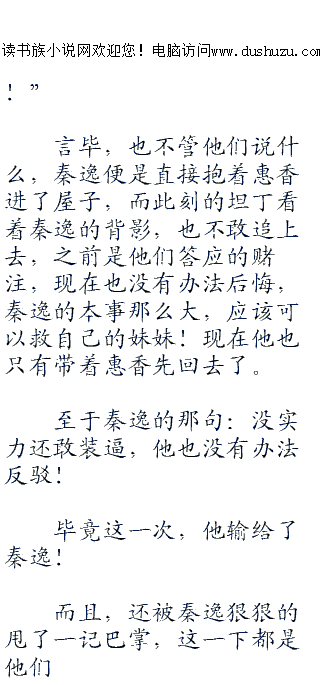 读书族小说网欢迎您！电脑访问www.dushuzu.com
！”
言毕，也不管他们说什
么，秦逸便是直接抱着惠香
进了屋子，而此刻的坦丁看
着秦逸的背影，也不敢追上
去，之前是他们答应的赌
注，现在也没有办法后悔，
秦逸的本事那么大，应该可
以救自己的妹妹！现在他也
只有带着惠香先回去了。
至于秦逸的那句：没实
力还敢装逼，他也没有办法
反驳！
毕竟这一次，他输给了
秦逸！
而且，还被秦逸狠狠的
甩了一记巴掌，这一下都是
他们